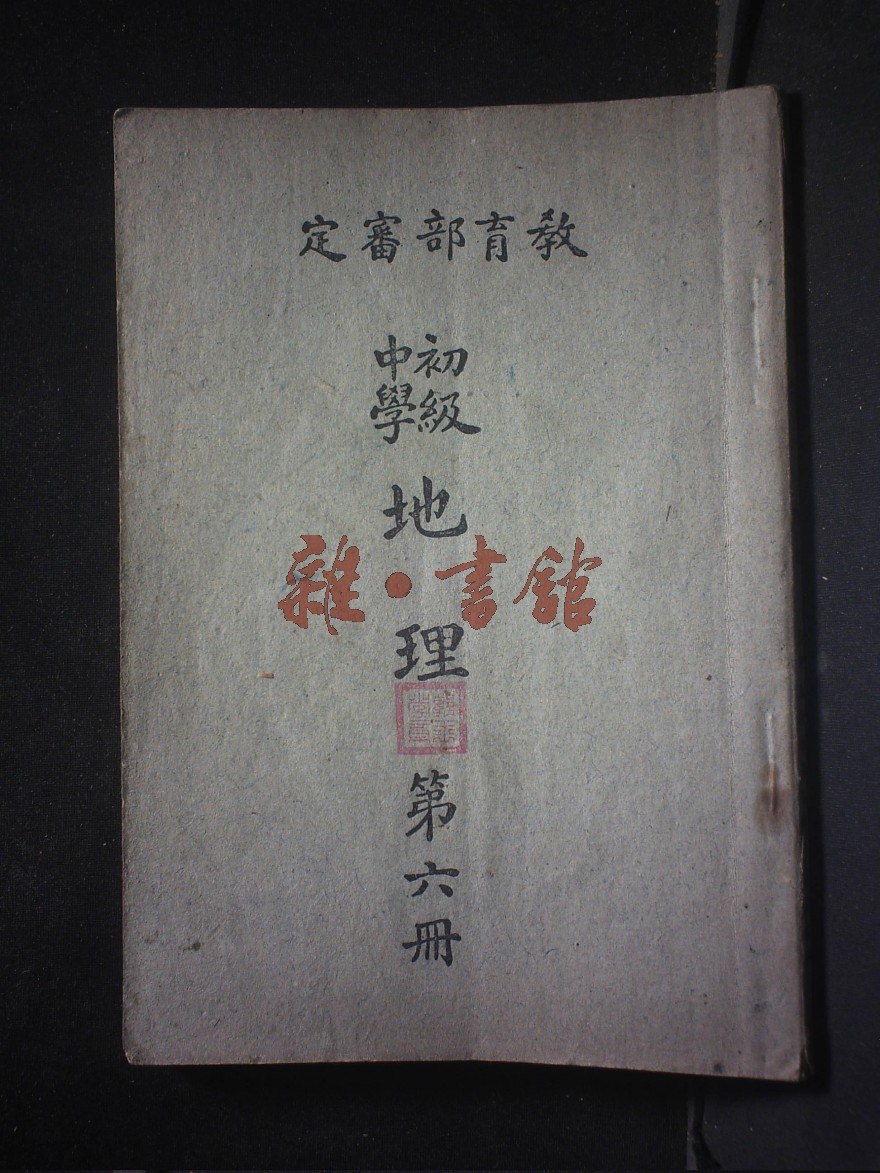 教育部審定
初級
中學
地理
雜·書館
第六冊